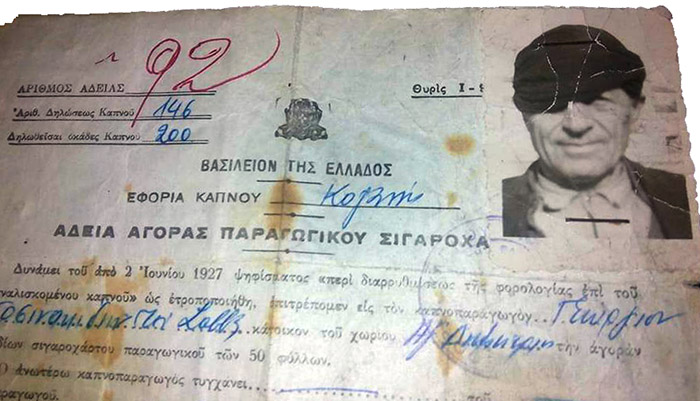 92
ΑΡΙΘΜΟΣ ΑΔΕΙΑΣ
Θυρὶς Ι-
Ἀριθ. Δηλώσεως Καπνοῦ 146
Δηλωθεῖσαι ὀκάδες Καπνοῦ 200
ΒΑΣΙΛΕΙΟΝ ΤΗΣ ΕΛΛΑΔΟΣ
ΕΦΟΡΙΑ ΚΑΠΝΟΥ Κοζάνης
ΑΔΕΙΑ ΑΓΟΡΑΣ ΠΑΡΑΓΩΓΙΚΟΥ ΣΙΓΑΡΟΧΑ
Δυνάμει τοῦ ἀπὸ 2 Ἰουνίου 1927 ψηφίσματος «περὶ διαρρυθμίσεως τῆς φορολογίας ἐπὶ τοῦ
ναλισκομένου καπνοῦ» ὡς ἐτροποποιήθη, ἐπιτρέπομεν εἰς τὸν καπνοπαραγωγὸν Γεώργιον
κάτοικον τοῦ χωρίου Ἁγ. Δημήτριον τὴν ἀγορὰν
δίων σιγαροχάρτου παραγωγικοῦ τῶν 50 φύλλων.
Ὁ ἀνωτέρω καπνοπαραγωγὸς τυγχάνει τοῦ
ραγωγοῦ.